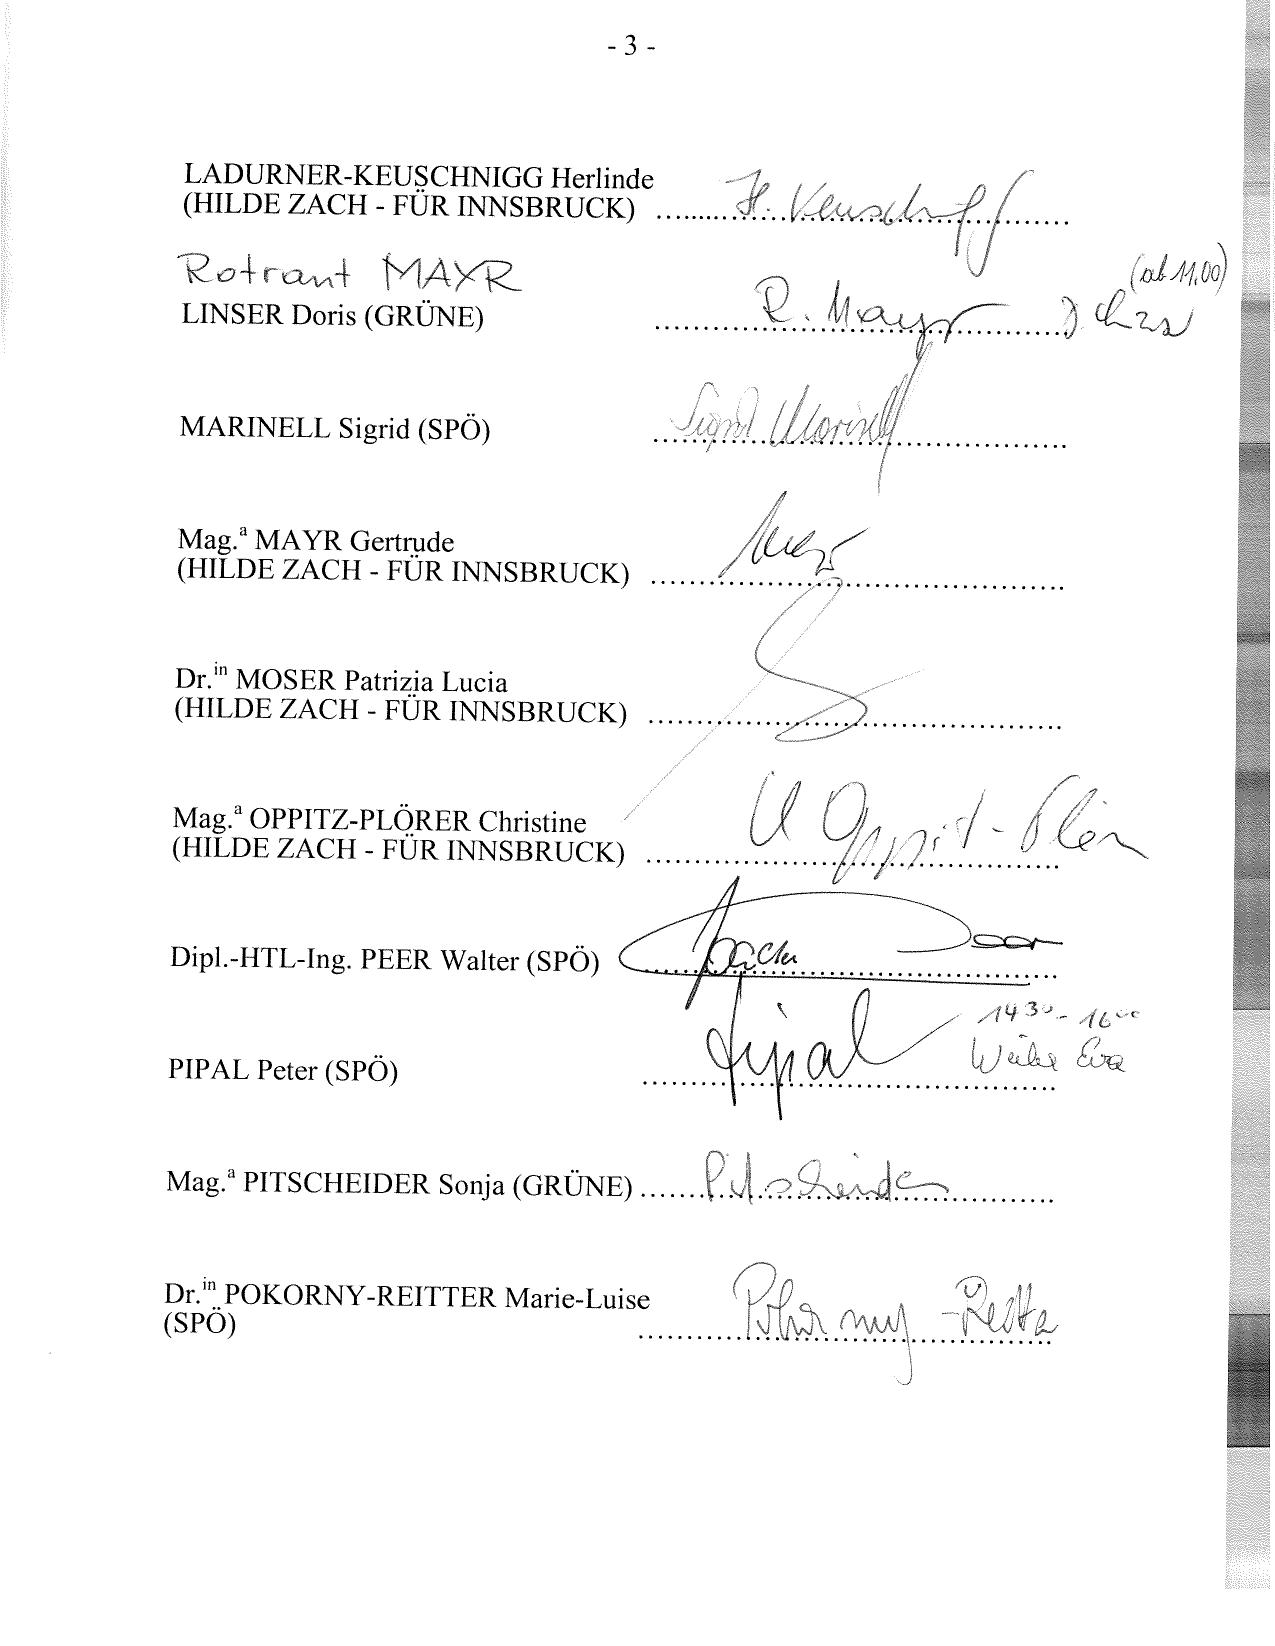 - 3 -
LADURNER-KEUSCHNIGG Herlinde
(HILDE ZACH - FÜR INNSBRUCK) ......................................................
H. Keuschnigg
Rotraut MAYR
(ab 11.00)
LINSER Doris (GRÜNE) ......................................................
R. Mayr
MARINELL Sigrid (SPÖ) ......................................................
Sigrid Marinell
Mag.ª MAYR Gertrude
(HILDE ZACH - FÜR INNSBRUCK) ......................................................
Mayr
Dr.in MOSER Patrizia Lucia
(HILDE ZACH - FÜR INNSBRUCK) ......................................................
Mag.ª OPPITZ-PLÖRER Christine
(HILDE ZACH - FÜR INNSBRUCK) ......................................................
Oppitz-Plörer
Dipl.-HTL-Ing. PEER Walter (SPÖ) ......................................................
14 30 - 16 00
PIPAL Peter (SPÖ) ......................................................
Pipal
Eva
Mag.ª PITSCHEIDER Sonja (GRÜNE) ......................................................
Pitscheider
Dr.in POKORNY-REITTER Marie-Luise
(SPÖ) ......................................................
Pokorny-Reitter